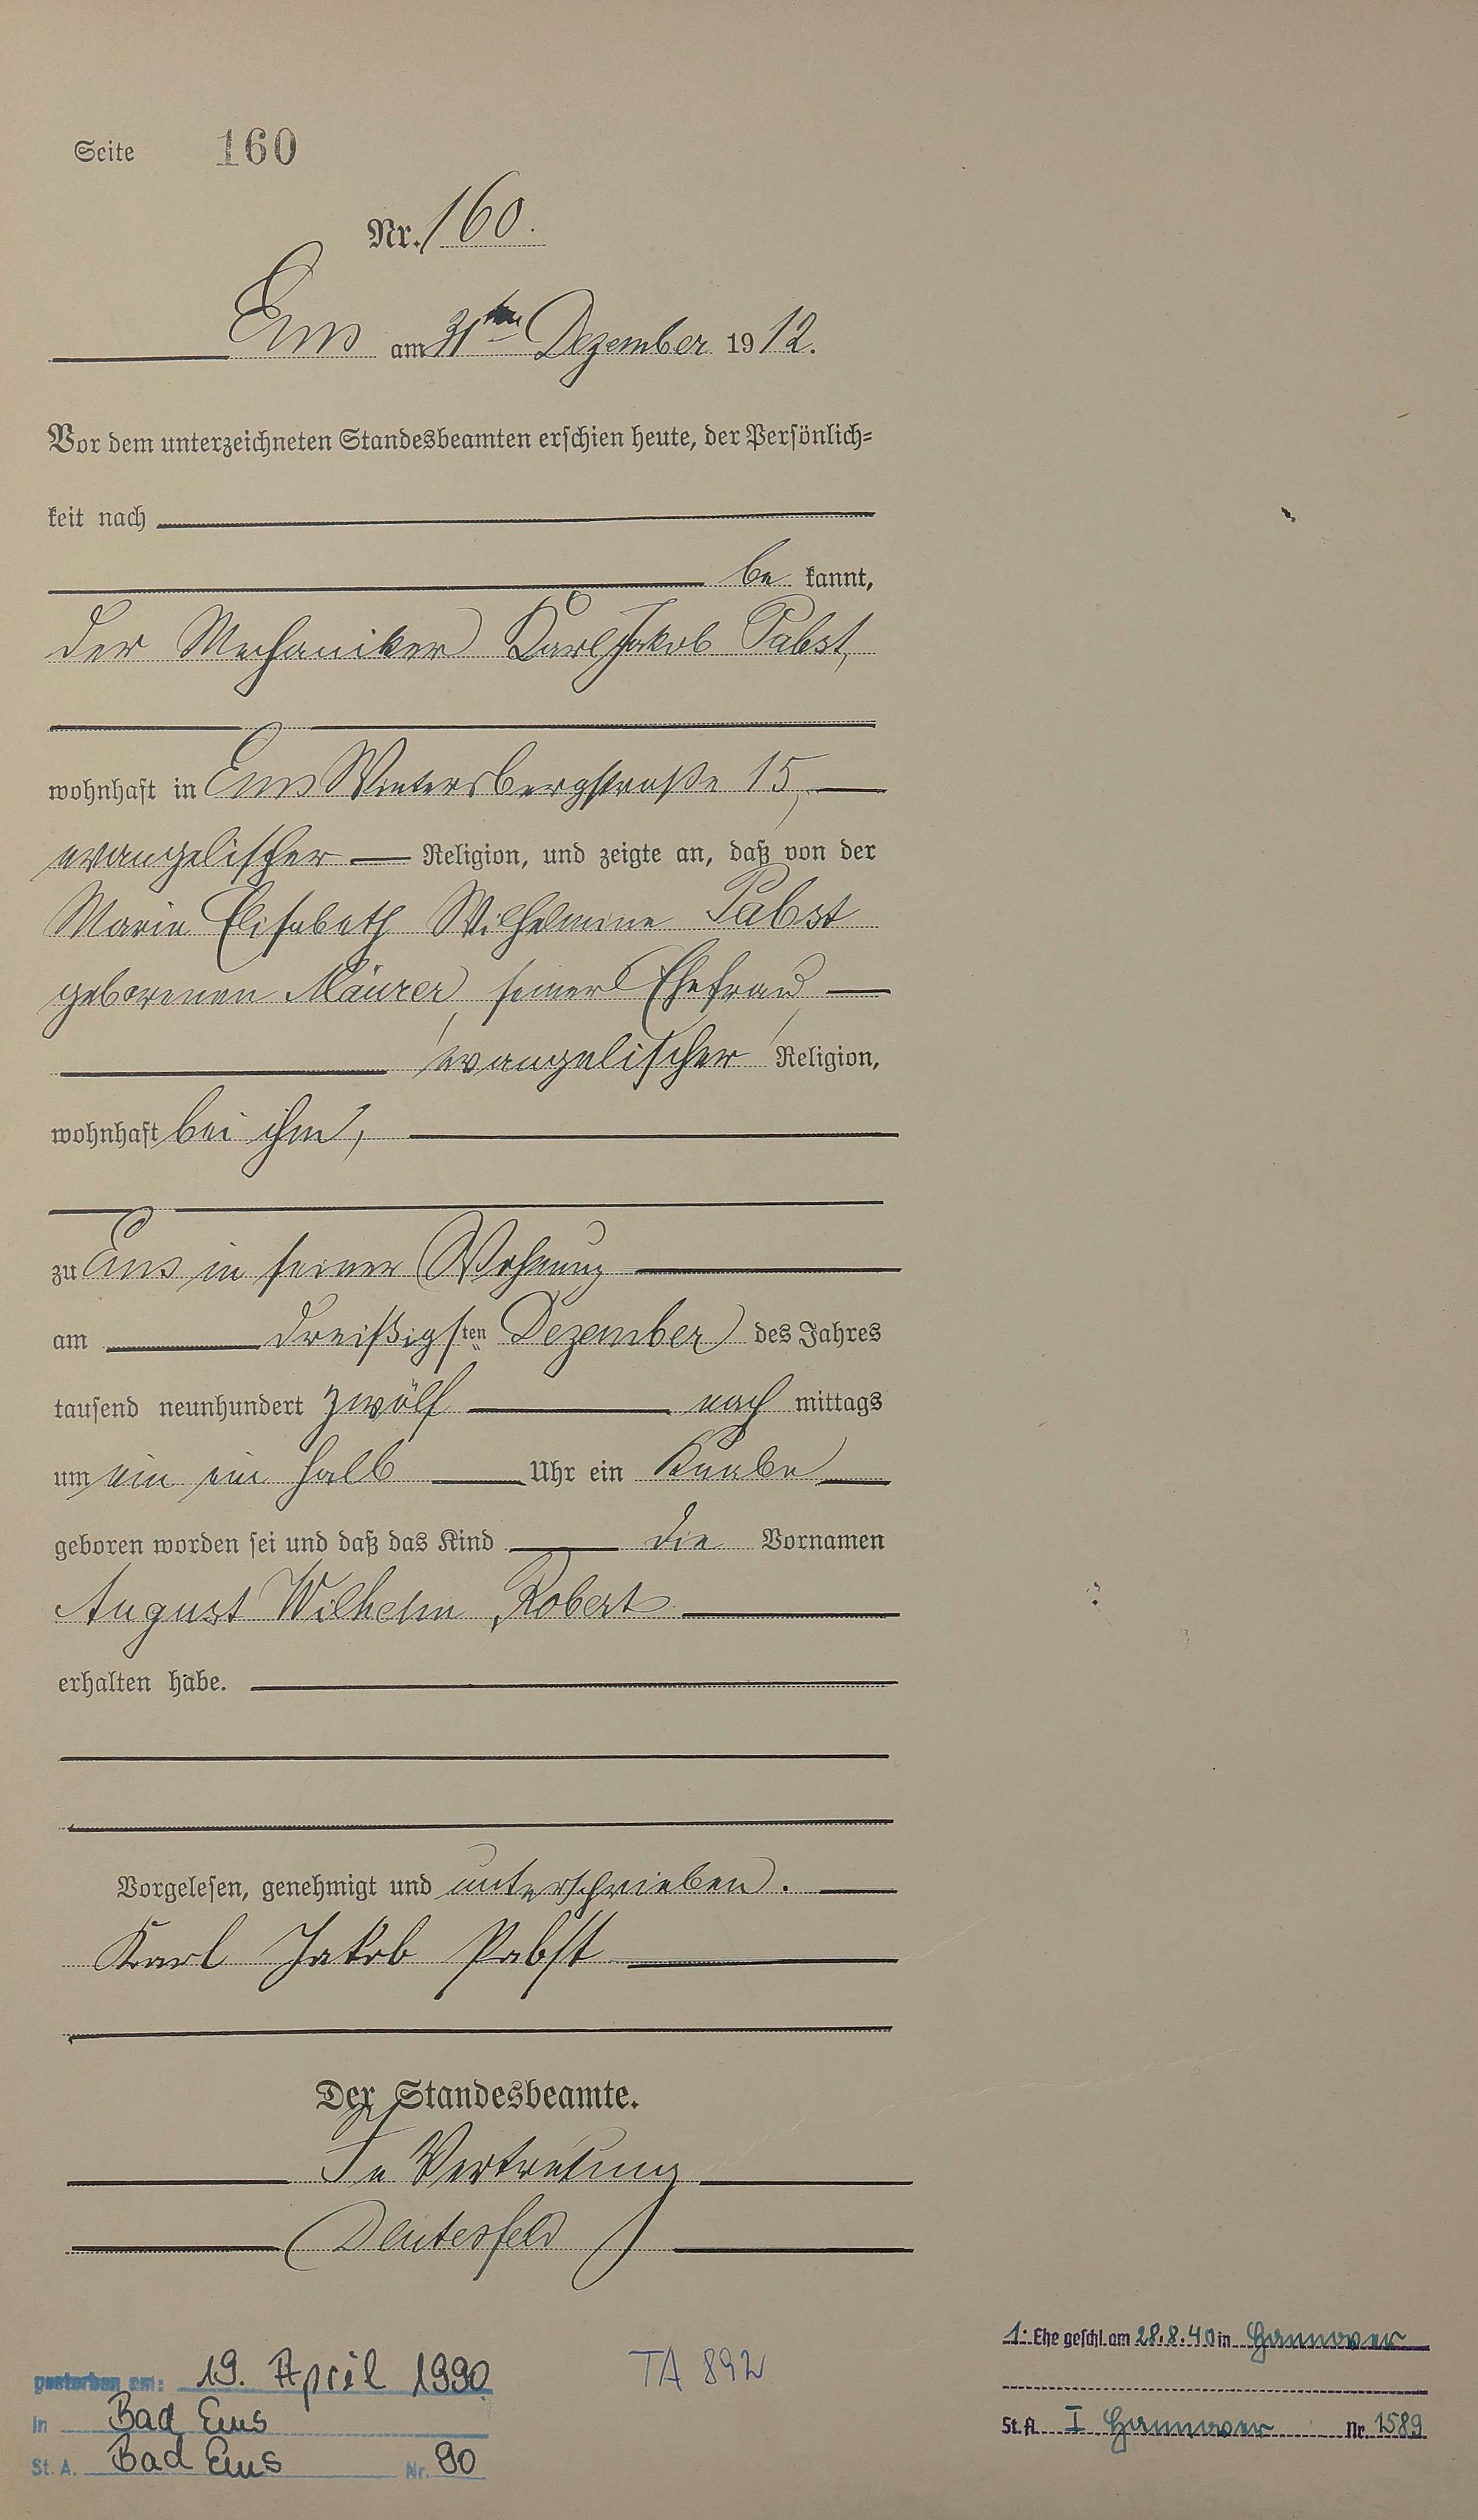 Seite 160
Nr. 160.
Ems am 31ten Dezember 1912.
Vor dem unterzeichneten Standesbeamten erschien heute, der Persönlich=
keit nach
be kannt,
der Mechaniker Karl Jakob Pabst,
wohnhaft in Ems Wintersbergstraße 15,
evangelischer Religion, und zeigte an, daß von der
Marie Elisabeth Wilhelmine Pabst
geborenen Mäurer, seiner Ehefrau,
evangelischer Religion,
wohnhaft bei ihm,
zu Ems in seiner Wohnung
am dreißigsten Dezember des Jahres
tausend neunhundert zwölf nach mittags
um ein ein halb Uhr ein Knabe
geboren worden sei und daß das Kind die Vornamen
August Wilhelm Robert
erhalten habe.
Vorgelesen, genehmigt und unterschrieben.
Karl Jakob Pabst
Der Standesbeamte.
In Vertretung
1. Ehe geschl. am 28.8.40 in Hannover
St.A. I Hannover Nr. 1589
gestorben am: 19. April 1990
in Bad Ems
St. A. Bad Ems Nr. 90
TA 892